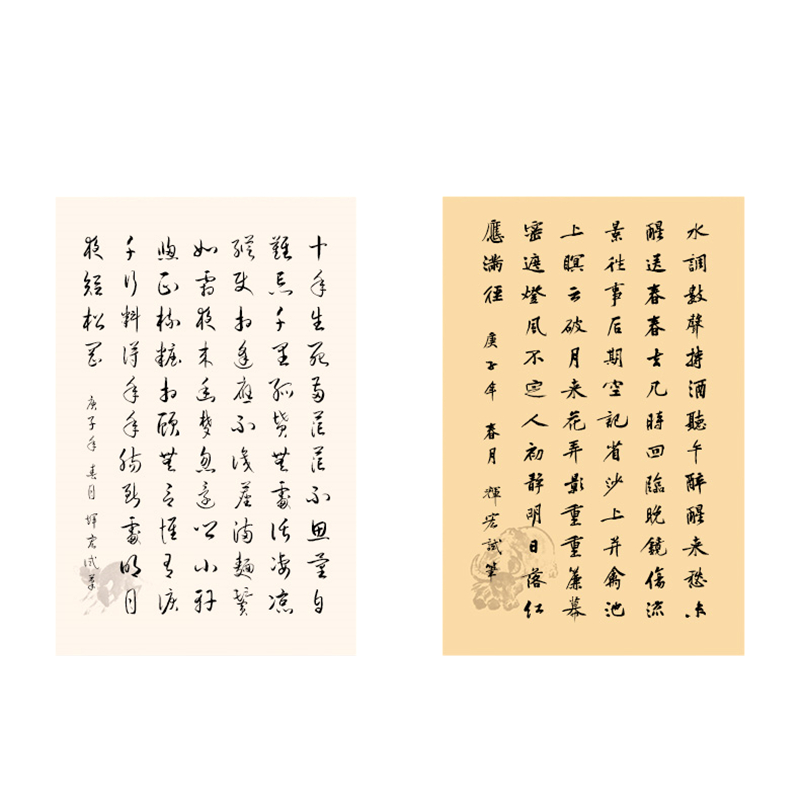 十年生死兩茫茫不思量自
難忘千里孤墳無處話凄涼
縱使相逢應不識塵滿麵鬢
如霜夜来幽夢忽還鄉小軒
窗正梳妝相顧無言惟有淚
千行料得年年腸斷處明月
夜短松岡
庚子年 春月 輝宏試筆
水調數聲持酒聽午醉醒来愁未
醒送春春去几時回臨晚鏡傷流
景往事后期空記省沙上并禽池
上暝云破月来花弄影重重簾幕
密遮燈風不定人初靜明日落红
應滿徑
庚子年 春月 輝宏試筆